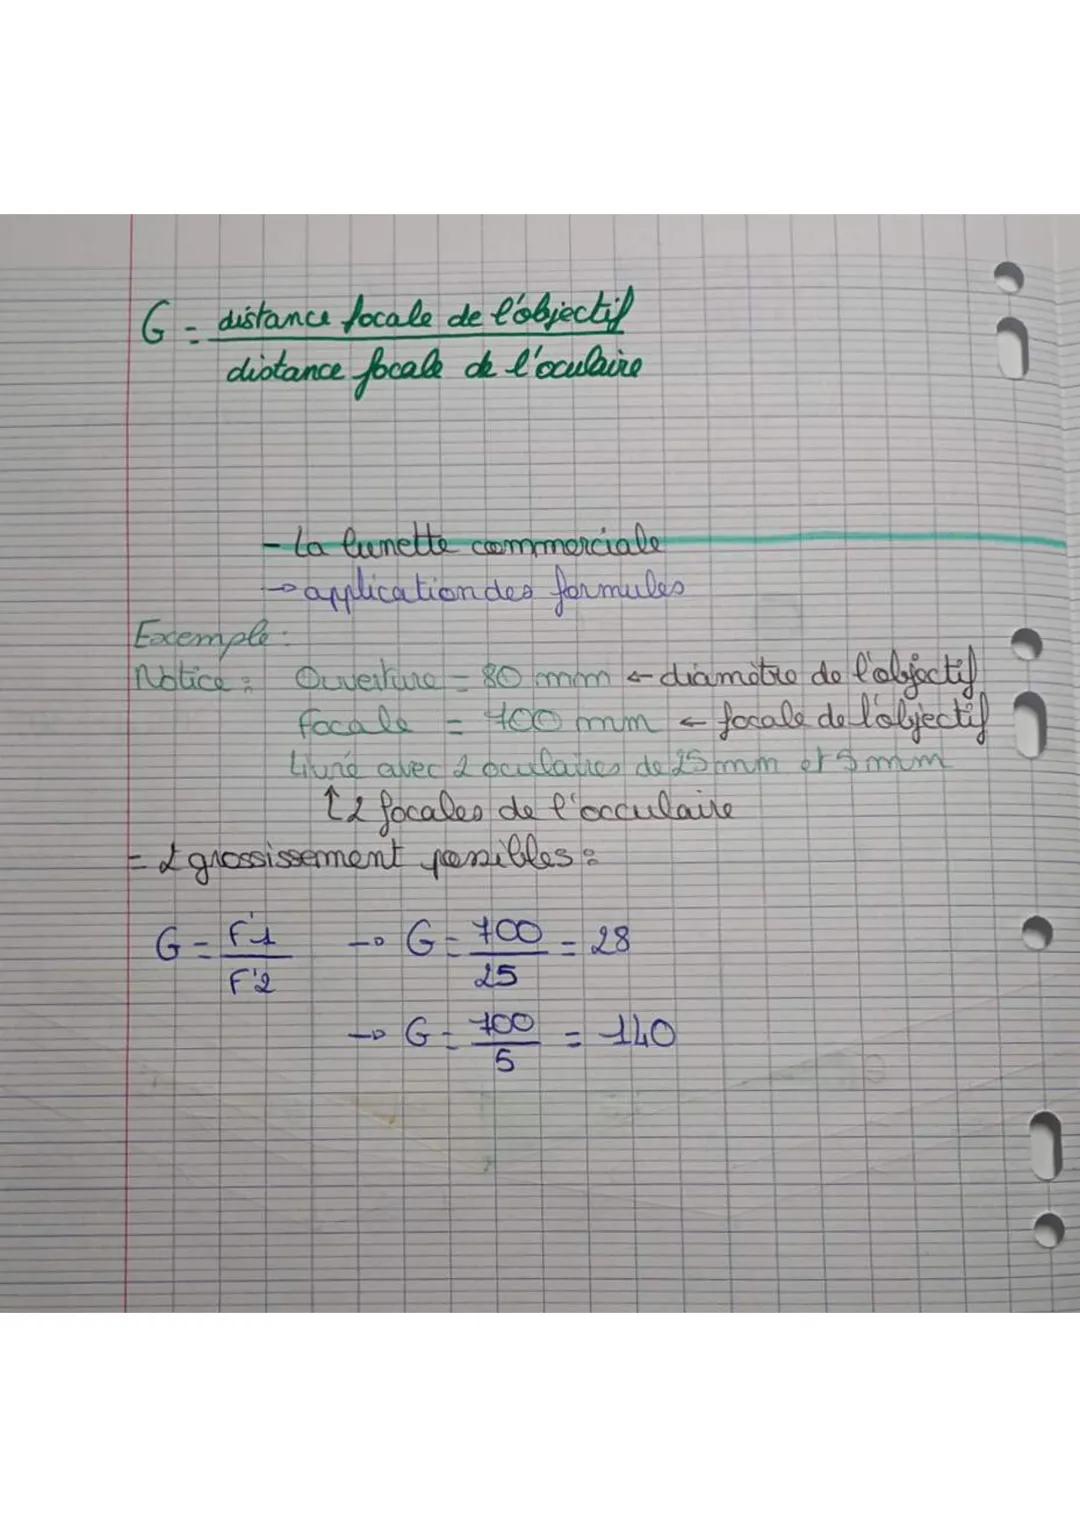 G = distance focale de l'objectif
distance focale de l'oculaire
- La lunette commerciale
→ application des formules
Exemple :
Notice : Ouverture = 80 mm ← diamètre de l'objectif
focale = 700 mm ← focale de l'objectif
Livré avec 2 oculaires de 25 mm et 5 mm
↑ 2 focales de l'occulaire
= 2 grossissement possibles :
G = F'1 → G = 700 = 28
F'2 25
→ G = 700 = 140
5